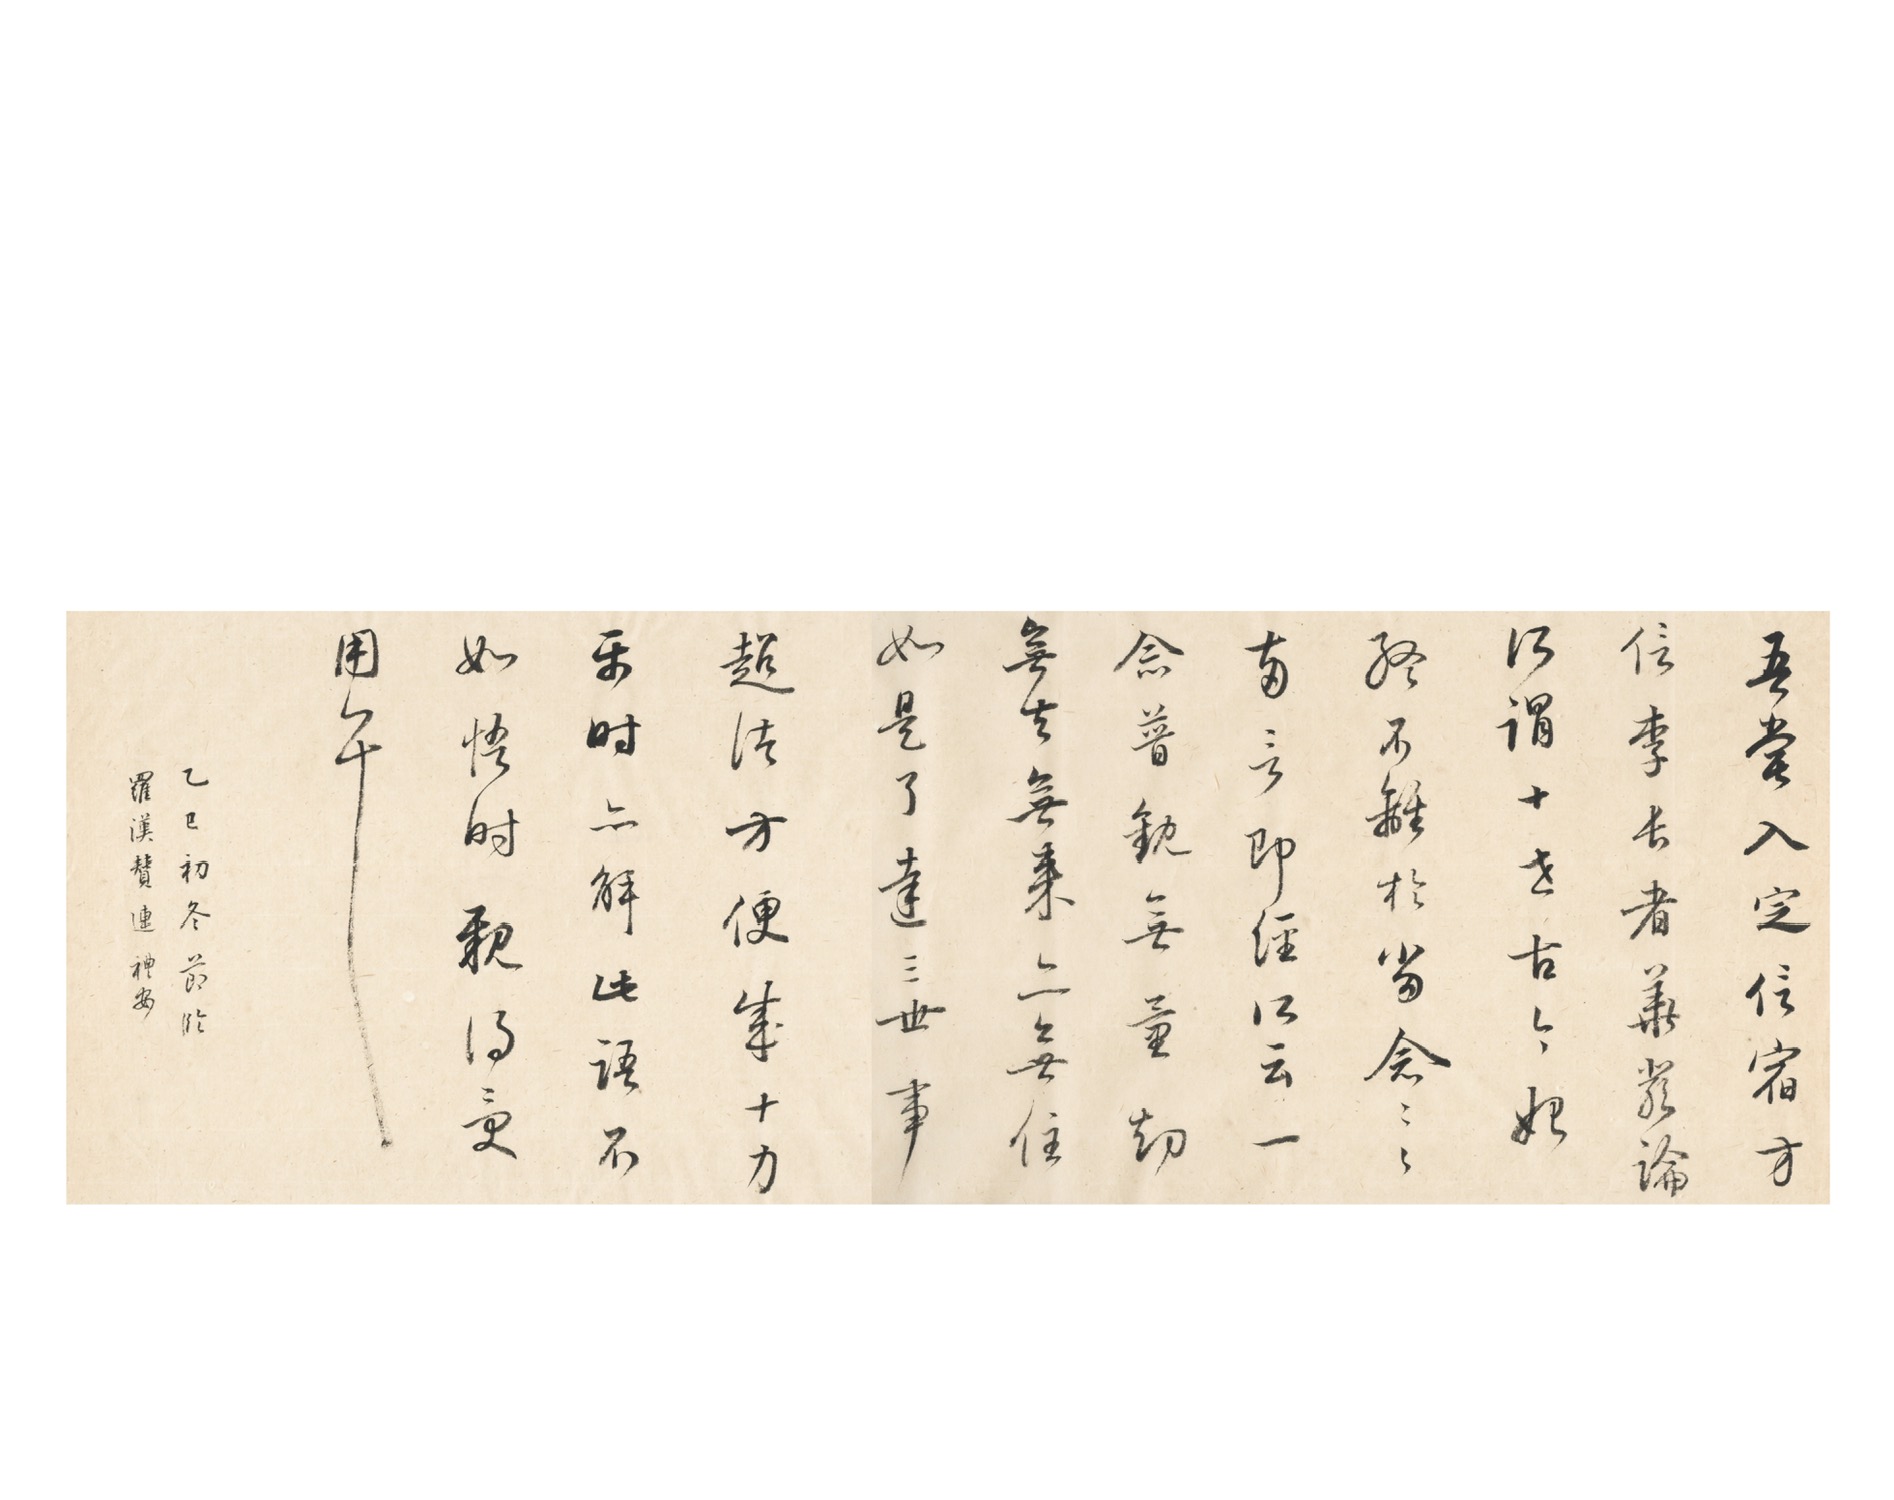 吾嘗入定信宿方
信李長者華嚴論
所謂十世古今始
終不離於當念〻〻
兩言即經所云一
念普觀無量劫
無去無來亦無住
如是了達三世事
超諸方便成十力
平时亦解此語不
如悟时親得受
用耳
乙巳初冬節臨
羅漢贊連禮安